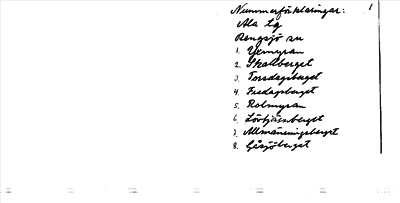 Nummerförklaringar: 1
Ala tg
Rengsjö sn
1. Yxmyran
2. Skallberget
3. Torsdagsberget
4. Fredagsberget
5. Kolmyran
6. Lövtjärnsberget
7. Allmänningsberget
8. Gåsjöberget